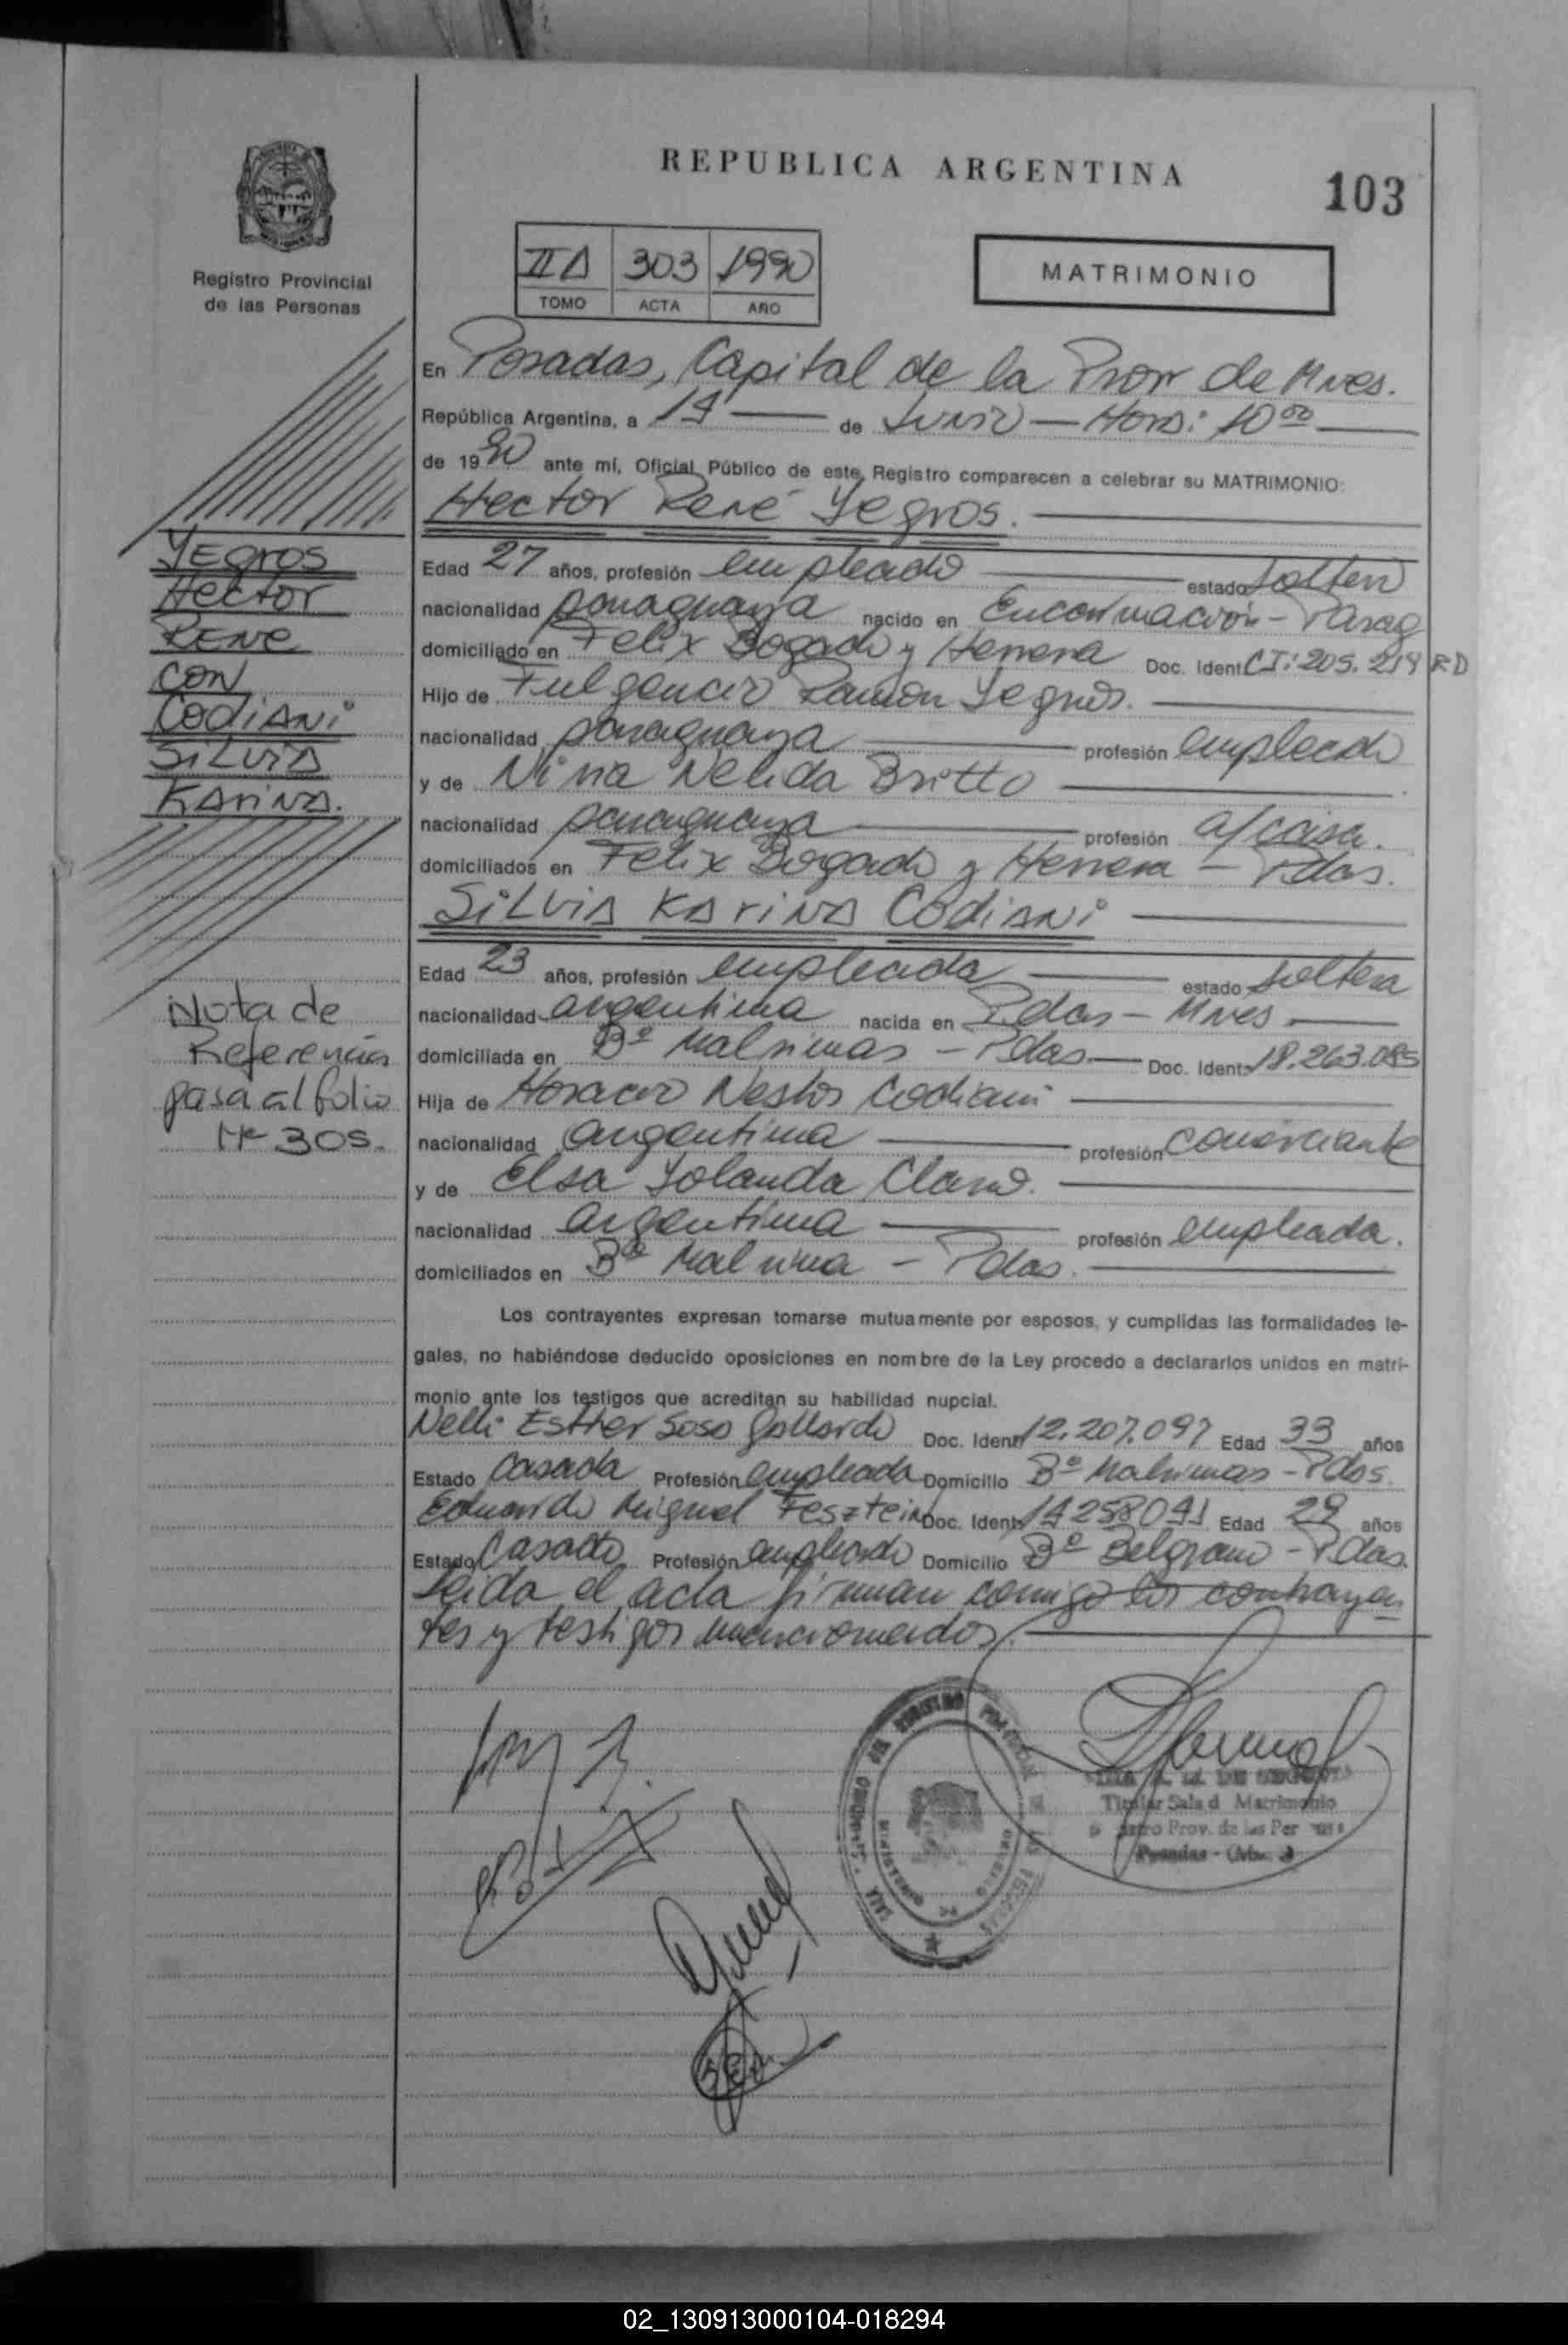 REPUBLICA ARGENTINA
103
Registro Provincial
de las Personas
II A 303 1990
TOMO ACTA AÑO
MATRIMONIO
En Posadas, Capital de la Prov de Mnes.
República Argentina, a 14 de Junio - Hora: 10 00
de 1990 ante mí, Oficial Público de este Registro comparecen a celebrar su MATRIMONIO:
Hector René Yegros.
Edad 27 años, profesión empleado estado soltero
nacionalidad paraguaya nacido en Encarnación - Parag
domiciliado en Felix Bogado y Herrera Doc. Ident CI: 205.219 RD
Hijo de Fulgencio Ramón Yegros.
nacionalidad paraguaya profesión empleado
y de Nina Nelida Britto
nacionalidad paraguaya profesión a/casa.
domiciliados en Felix Bogado y Herrera - Pdas.
Silvia Karina Codiani
Edad 23 años, profesión empleada estado soltera
nacionalidad argentina nacida en Pdas - Mnes
domiciliada en Bº Malvinas - Pdas. Doc. Ident 18.263.085
Hija de Horacio Nestor Codiani
nacionalidad argentina profesión comerciante
y de Elsa Yolanda Claro.
nacionalidad argentina profesión empleada.
domiciliados en Bº Malvina - Pdas.
Los contrayentes expresan tomarse mutuamente por esposos, y cumplidas las formalidades le-
gales, no habiéndose deducido oposiciones en nombre de la Ley procedo a declararlos unidos en matri-
monio ante los testigos que acreditan su habilidad nupcial.
Nelli Esther Soso Gallardo Doc. Ident 12.207.097 Edad 33 años
Estado Casada Profesión empleada Domicilio Bº Malvinas - Pdas.
Eduardo Miguel Fesztein Doc. Ident 14258041 Edad 29 años
Estado Casado Profesión empleado Domicilio Bº Belgrano - Pdas.
Leida el acta firman comigo los contrayen
tes y testigos mencionados.
YEgros
Hector
RENE
con
Codiani
Silvia
Karina.
Nota de
Referencias
pasa al folio
Nº 305.
Titular Sala d Matrimonio
Prov. de las Per
Posadas
02_130913000104-018294